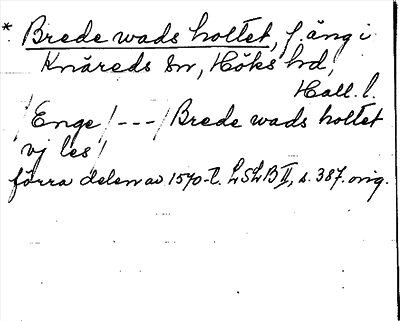 * Brede wads holtet, f. äng i
Knäreds sn, Höks hd,
Hall. l.
/Enge/---/Brede wads holtet
vj les/
förra delen av 1570-t. LSLB II, s. 387. orig.